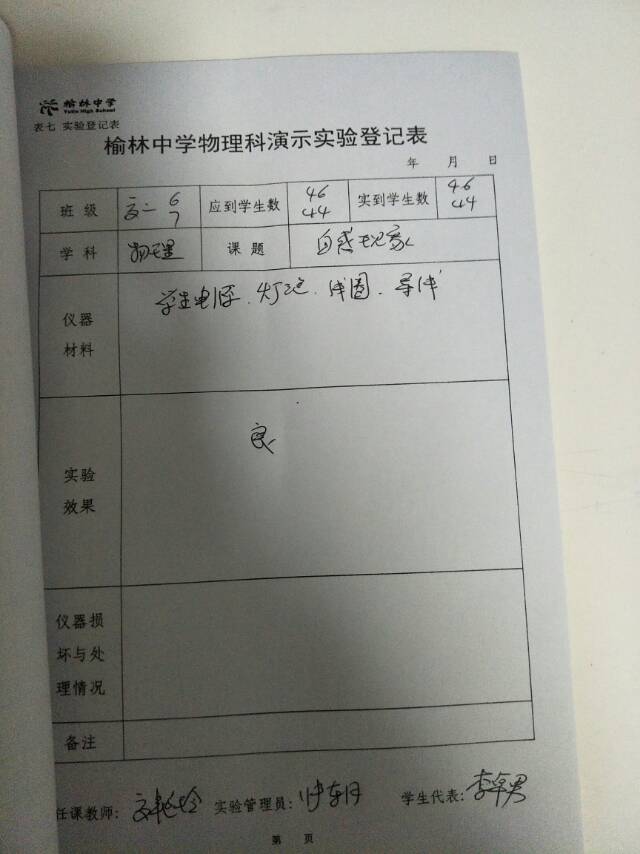 榆林中学
Yulin High School
表七 实验登记表
榆林中学物理科演示实验登记表
年 月 日
班 级 高二 6 7 应到学生数 46 44 实到学生数 46 44
学 科 物理 课 题 自感现象
仪器材料 学生电源、灯泡、线圈、导线
实验效果 良
仪器损
坏与处
理情况
备注
任课教师: 实验管理员: 学生代表:
第 页